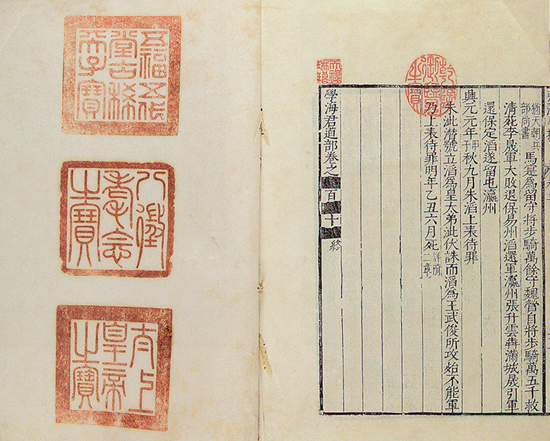 乾隆御覽之寶
天祿琳琅
猶天朝兵
部尚書
馬寔為留守將步騎萬餘守魏營自將步騎萬五千救
清苑李晟軍大敗退保易州滔還軍瀛州張升雲奔滿城晟引軍
還保定滔遂留屯瀛州
興元元年甲子秋九月朱滔上表待罪
朱泚潛號立滔為皇太弟泚伏誅而滔為王武俊所攻殆不能軍
乃上表待罪明年乙丑六月死
學海君道部卷之百十終
五福五代堂古稀天子寶
八徵耄念之寶
太上皇帝之寶